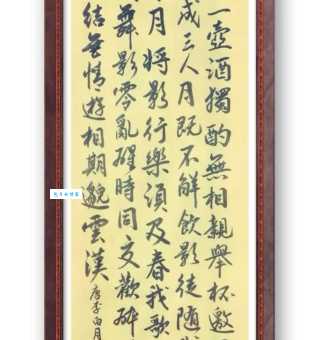 一壺酒獨酌無相親舉杯邀
成三人月既不解飲影徒隨
月將影行樂須及春我歌
舞影零亂醒時同交歡醉
結無情遊相期邈雲漢
唐李白月